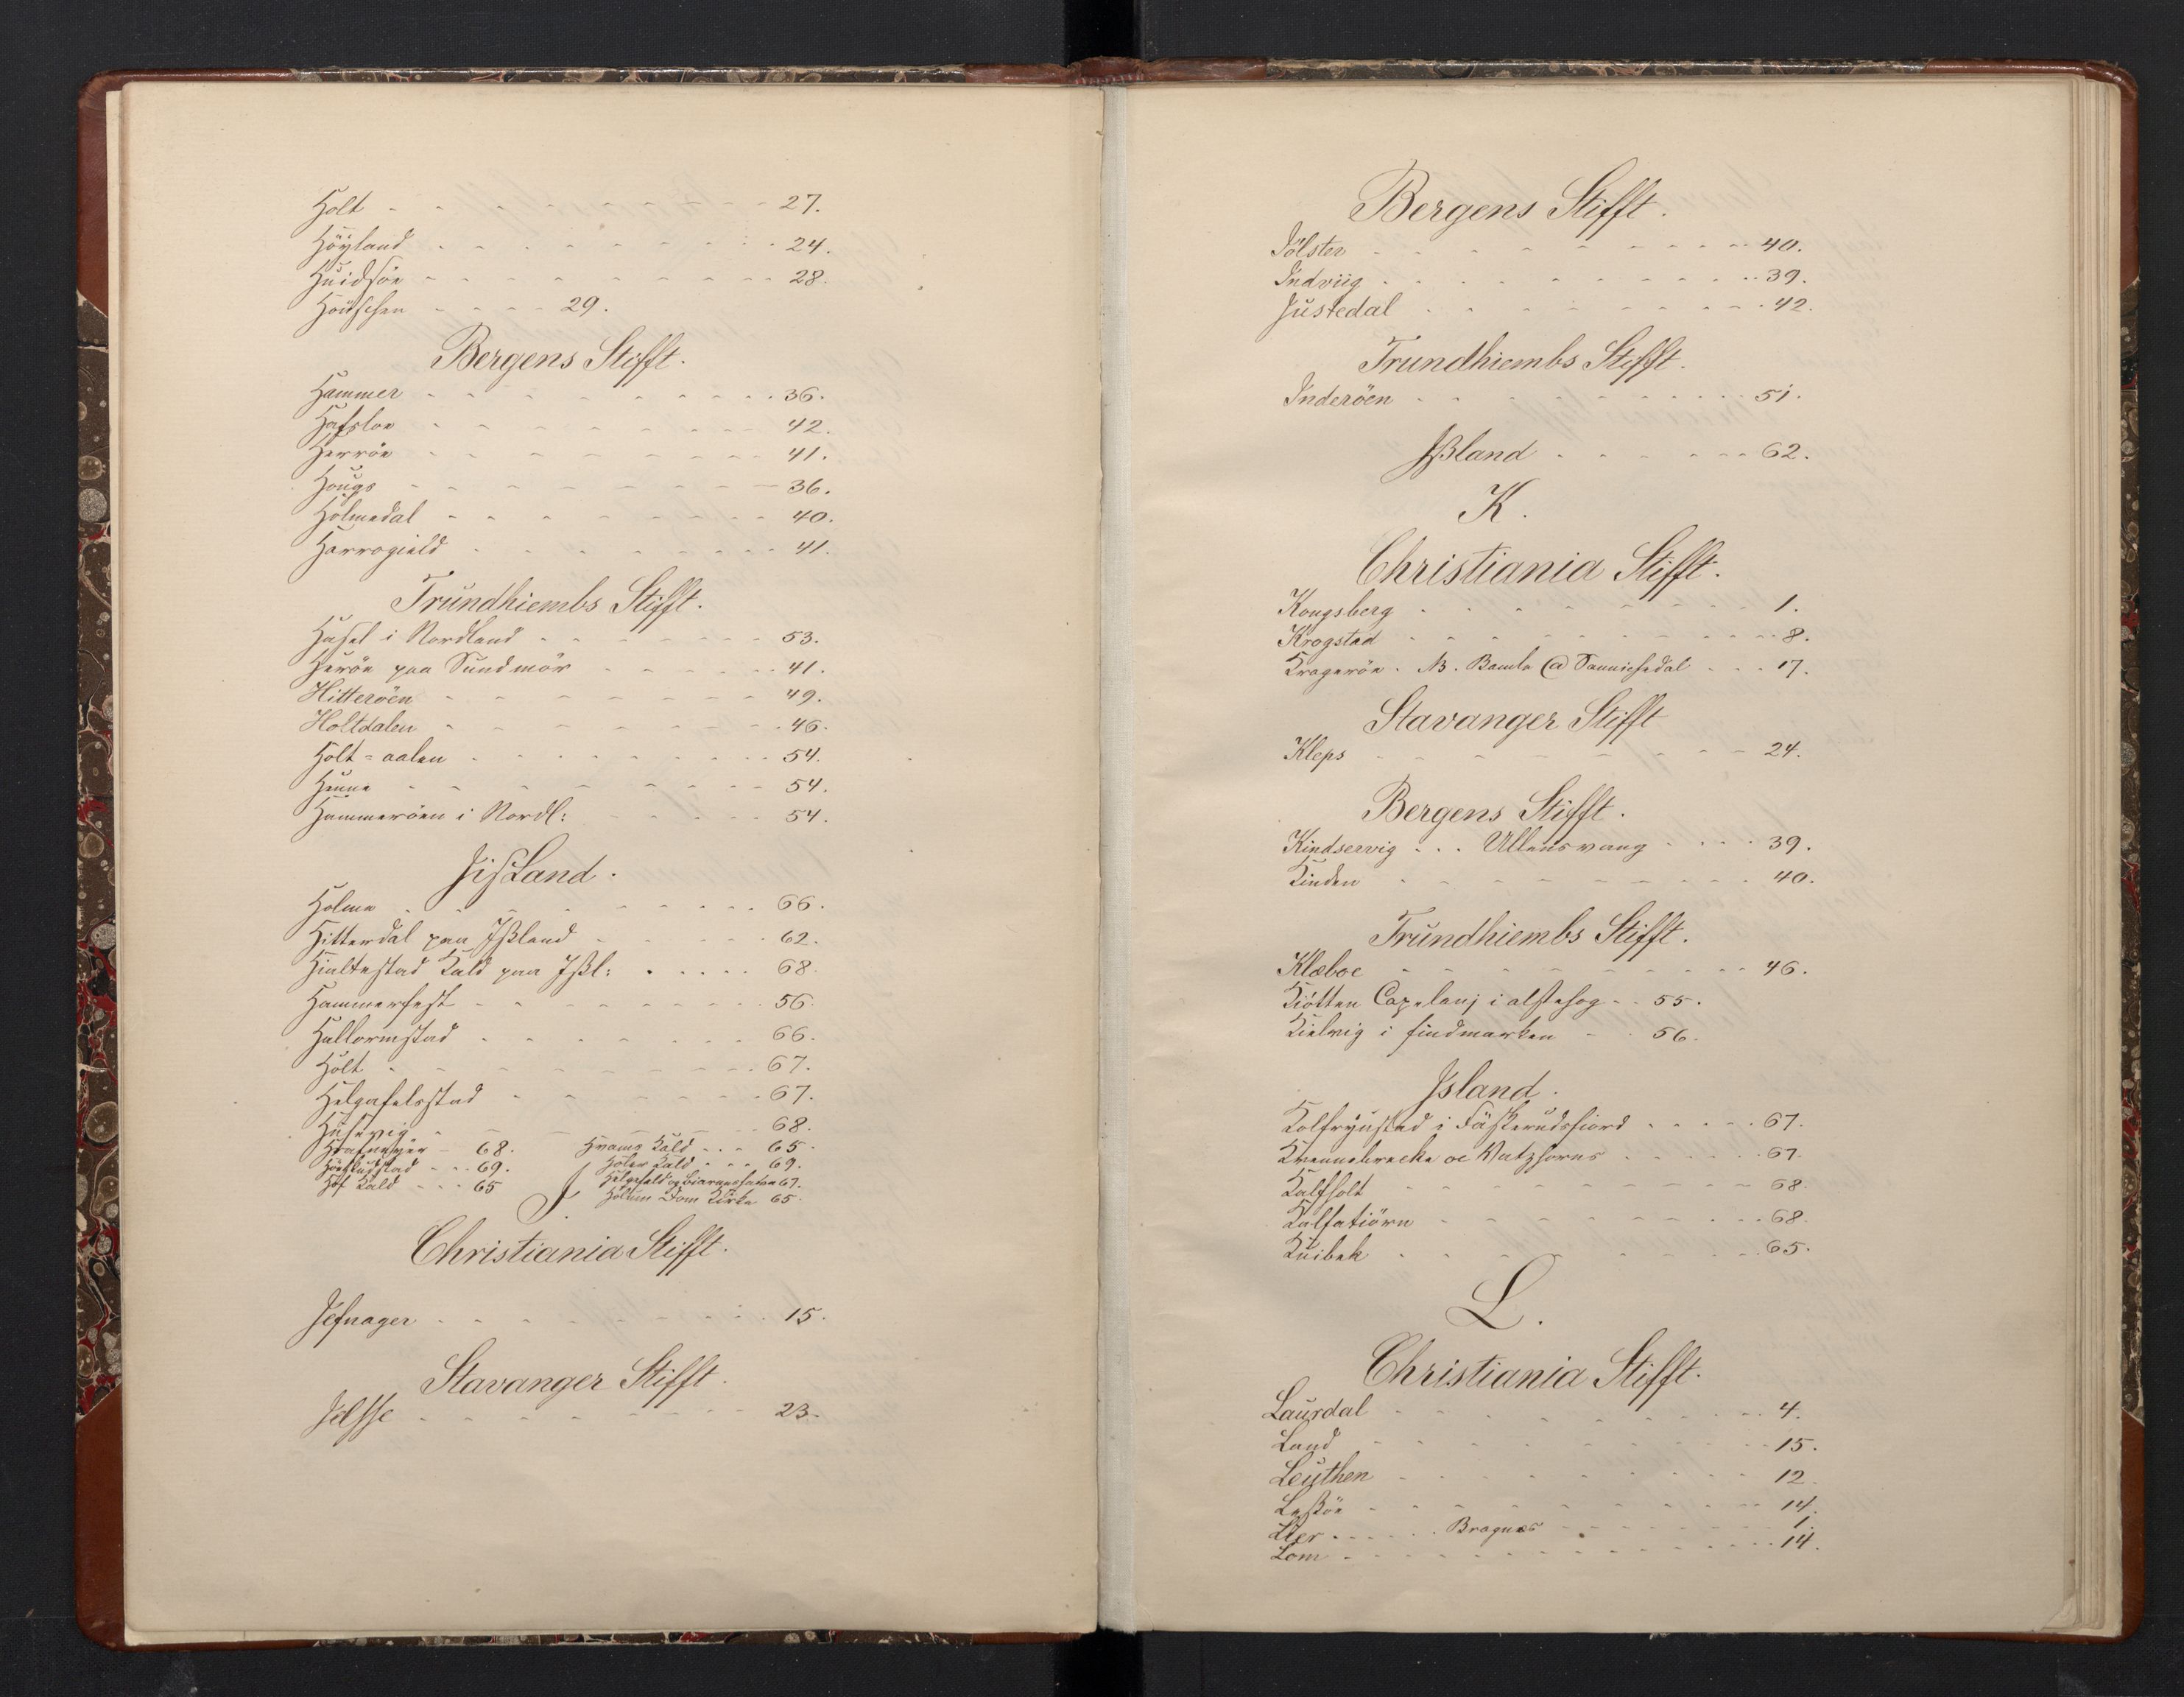 Holt - - - - - - - - - 27.
Höyland - - - - - - - - 24.
Huidsöe - - - - - - - - 28.
Höidschen - - - - 29.
Bergens Stifft.
Hammer - - - - - - - - 36.
Hafsloe - - - - - - - - 42.
Herröe - - - - - - - - 41.
Hougs - - - - - - - - 36.
Holmedal - - - - - - - - 40.
Harrogield - - - - - - - - 41.
Trundhiembs Stifft.
Hasel i Nordland - - - - - - 53.
Heröe paa Sundmör - - - - - 41.
Hitteröen - - - - - - - - 49.
Holtdalen - - - - - - - - 46.
Holt=aalen - - - - - - - - 54.
Henne - - - - - - - - 54.
Hammeröen i Nordl: - - - - 54.
JisLand.
Holme - - - - - - - - 66.
Hitterdal paa Ißland - - - - - 62.
Hialtestad Kald paa Ißl: - - - - 68.
Hammerfest - - - - - - - 56.
Hallormstad - - - - - - - 66.
Holt - - - - - - - - 67.
Helgafelsstad - - - - - - 67.
Husevig - - - - - - - 68.
68. Hvams Kald - - - 65.
69. Holer Kald - - - 69.
Hof Kald - - - 65 67.
Holum Dom Kirke 65.
J.
Christiania Stifft.
Jefnager - - - - - - - - 15.
Stavanger Stifft.
Jelsse - - - - - - - - 23.
Bergens Stifft.
Jölster - - - - - - - - 40.
Indviig - - - - - - - - 39.
Justedal - - - - - - - - 42.
Trundhiembs Stifft.
Inderöen - - - - - - - - 51.
Ißland - - - - - - 62.
K.
Christiania Stifft.
Kongsberg - - - - - - - - 1.
Krogstad - - - - - - - - 8.
Krageröe. NB. Bamle @ Sannichedal - - - 17.
Stavanger Stifft
Kleps - - - - - - - - 24.
Bergens Stifft.
Kindservig . . . Ullensvang - - - - 39.
Kinden - - - - - - - - 40.
Trundhiembs Stifft.
Klæboe - - - - - - - - 46.
Kiötten Capelanj i alstahog - - 55.
Kielvig i findmarken - - 56.
Jsland.
Kolfrÿustad i Fäskerudsfiord - - - - - 67.
Kvennebrecke oc Watzhorns - - - - - 67.
Kalfholt - - - - - - - - 68.
Kalfatiörn - - - - - - - - 68.
Kuibek - - - - - - - - 65.
L.
Christiania Stifft.
Laurdal - - - - - - - - 4.
Land - - - - - - - - 15.
Leüthen - - - - - - - - 12
Leßöe - - - - - - - - 14.
Lier - - - - - Bragnæs - - - - - - 1.
Lom - - - - - - - - 14.